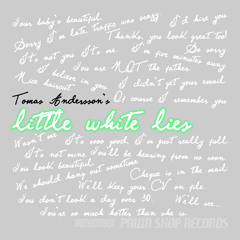 Your baby's beautiful. I'd hire you
Sorry I'm late, traffic was crazy
Thanks, you look great too!
It's not you It's me. I'm five minutes away Do sorry
I believe in you You are NOT the father.
Nice haircut I didn't get your email
Tomas Andersson's Of course I remember you
little white lies
Wasn't me It's sooo good, I'm just really full
It's not mine You'll be hearing from us soon
You look beautiful.
We should hang out sometime Cheque is in the mail
We'll keep your CV on file
You don't look a day over 30. We'll see...
You're so much hotter than she is
PAWN SHOP RECORDS